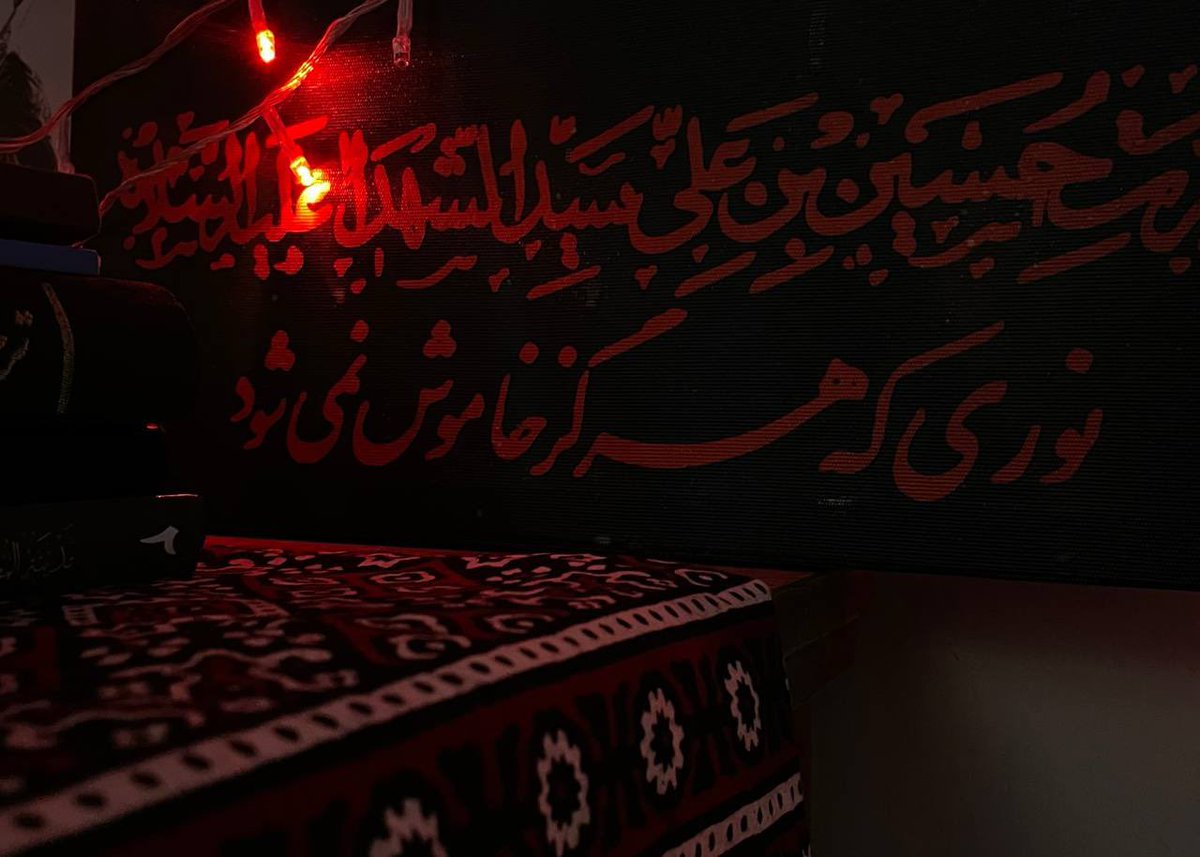 حسین بن علی سید الشهدا علیه السلام
نوری که هرگز خاموش نمی شود
۶